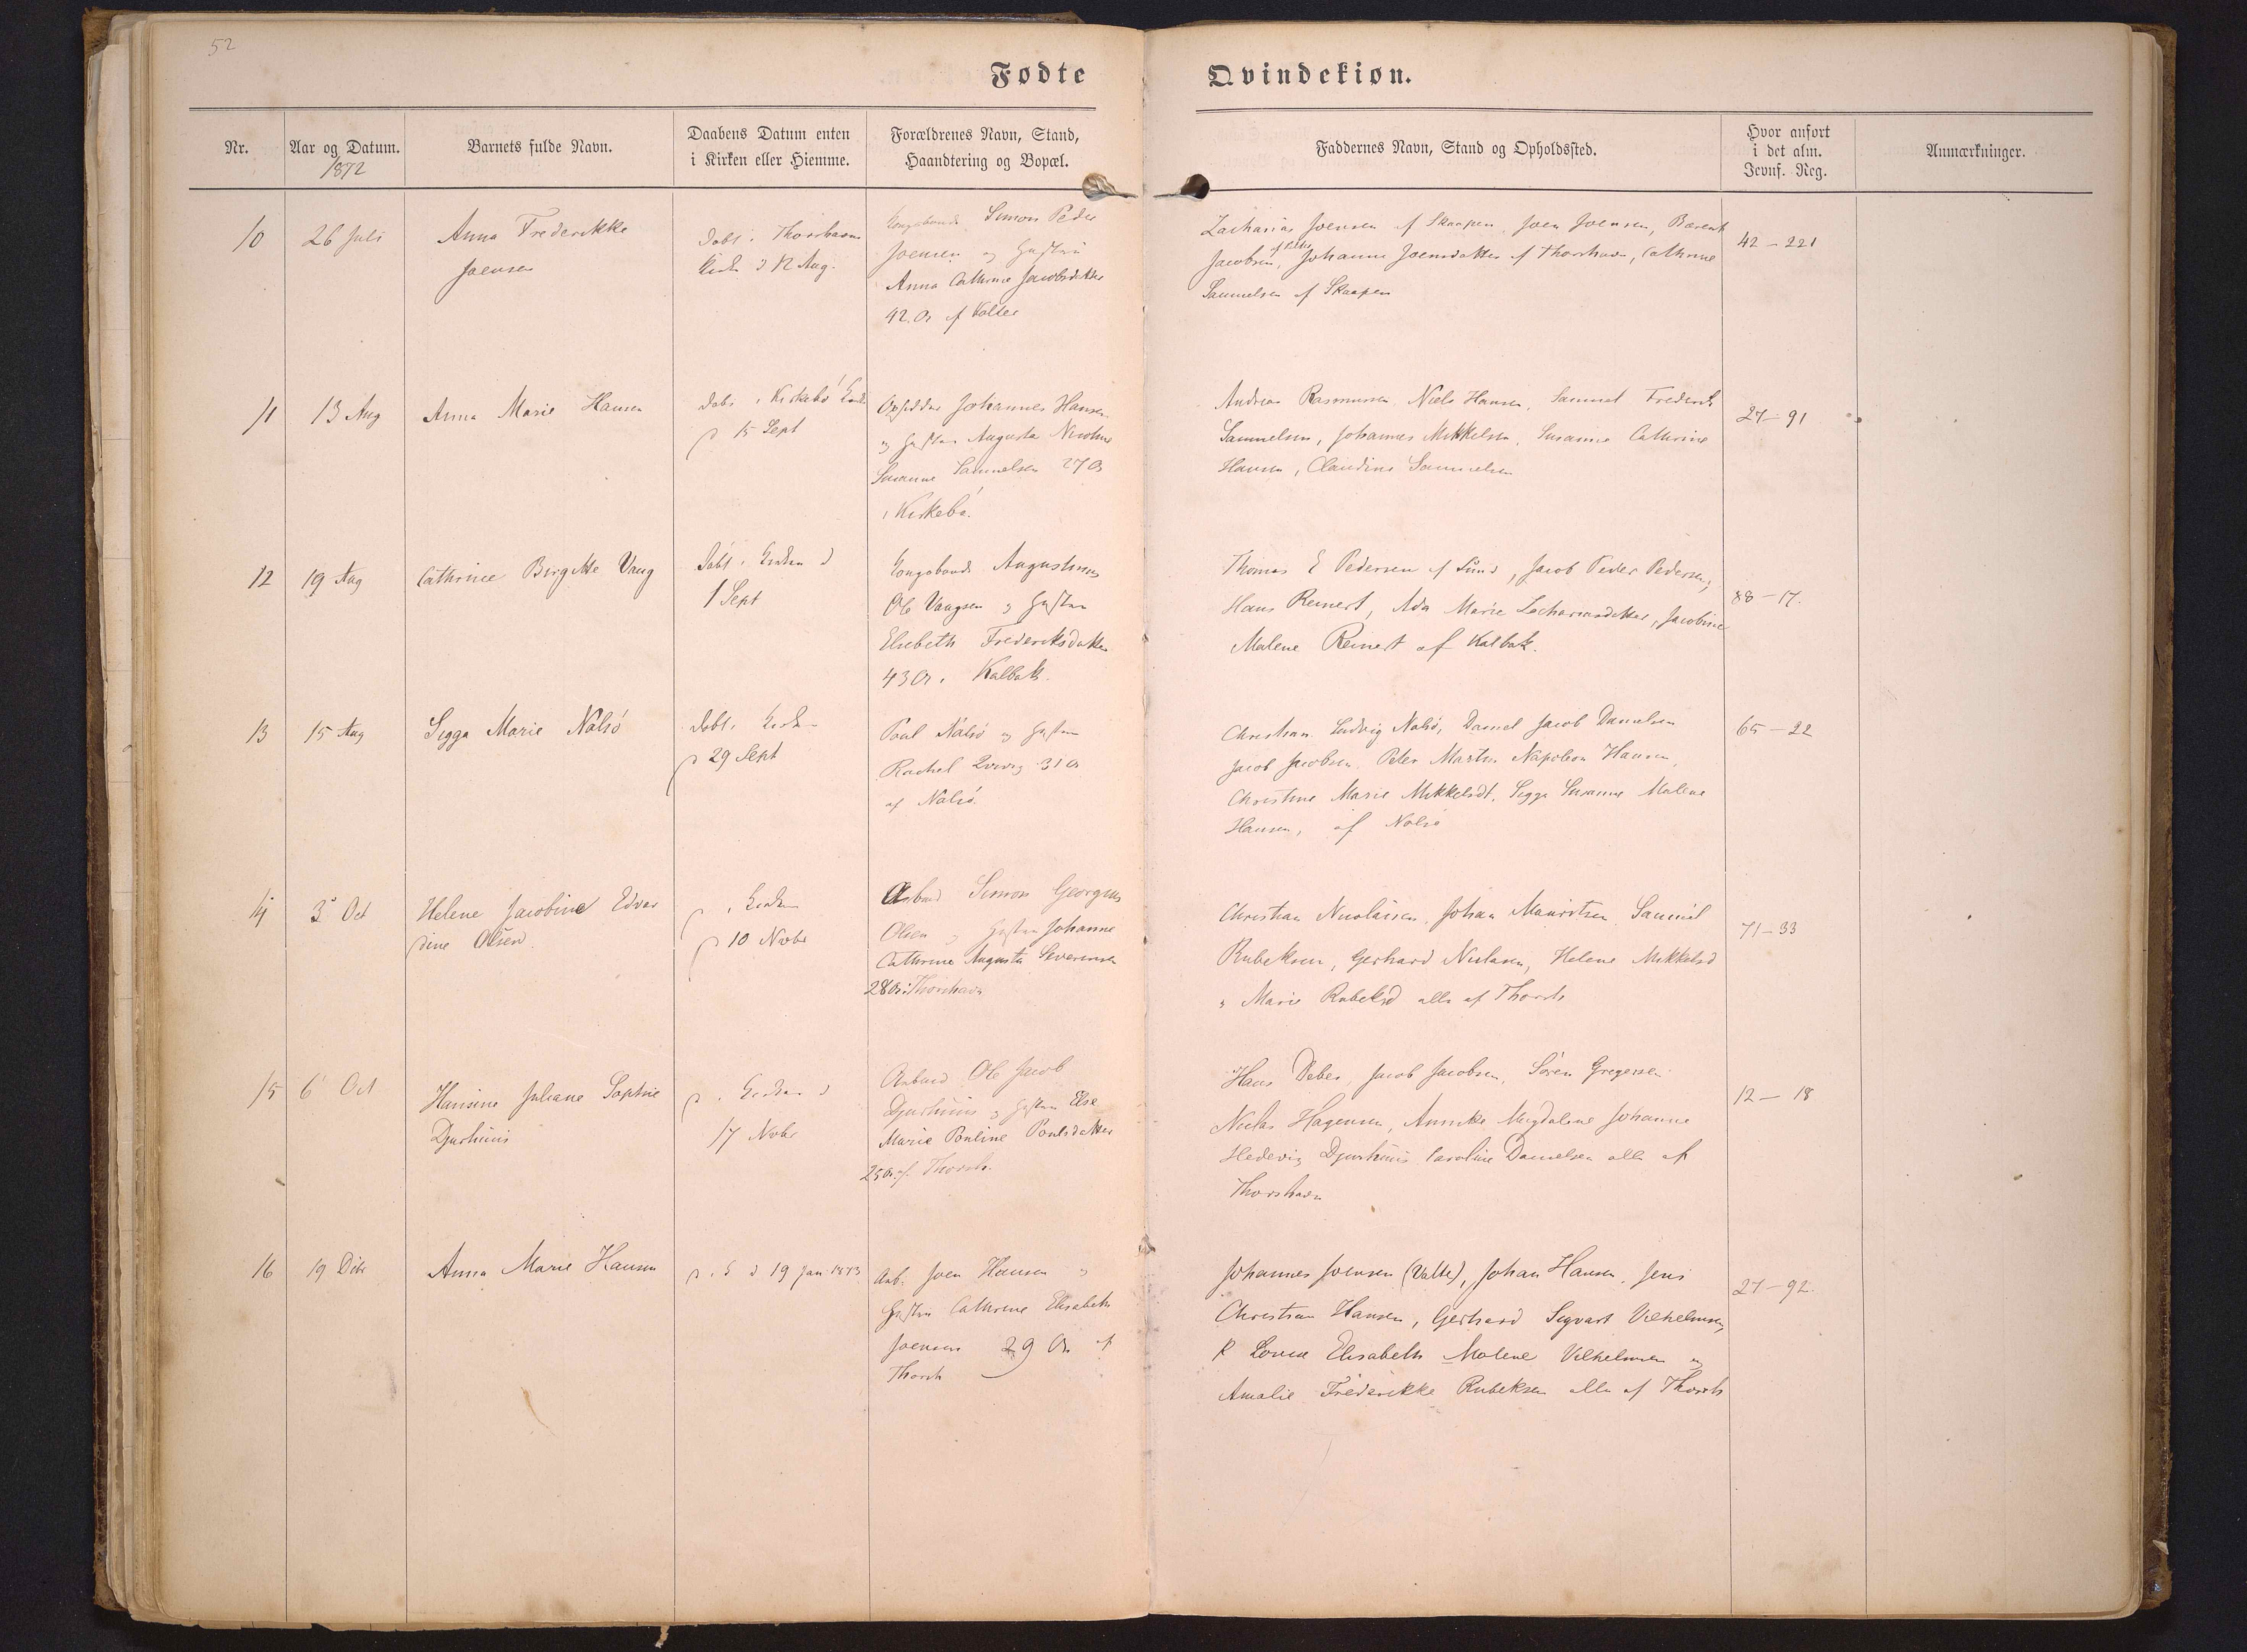 52
Fødte
Qvindekiøn.
Nr.
Aar og Datum.
1872
Barnets fulde Navn.
Daabens Datum enten
i Kirken eller Hiemme.
Forældrenes Navn, Stand,
Haandtering og Bopæl.
Faddernes Navn, Stand og Opholdssted.
Hvor anført
i det alm.
Jevnf. Reg.
Anmærkninger.
10
26 Juli
Anna Frederikke
Joensen
Døbt i Thorshavns
Kirke d 12 Aug.
Kongsbonde Simon Peder
Joensen og Hustru
Anna Cathrine Jacobsdatter
42 Ar af Kolter
Zacharias Joensen af Skaapen, Joen Joensen, Barent
Jacobsen, af Kolter Johanne Joensdatter af Thorshavn, Cathrine
Samuelsen af Skaapen
42 - 221
11
13 Aug
Anna Marie Hansen
Døbt i Kirkebø Kirke
d 15 Sept
Opsidder Johannes Hansen
og Hustru Augusta Nicoline
Susanne Samuelsen 27 Ar
i Kirkebø.
Andreas Rasmussen, Niels Hansen, Samuel Frederik
Samuelsen, Johannes Mikkelsen, Susanne Cathrine
Hansen, Claudine Samuelsen
27 - 91
12
19 Aug
Cathrine Birgitte Vang
Døbt i Kirken d
1 Sept
Kongsbonde Augustinus
Ole Vangsen og Hustru
Elsebeth Frederiksdatter
43 Ar i Kalbak.
Thomas E Pedersen af Sund, Jacob Peder Pedersen,
Hans Reinert, Ada Marie Zachariasdatter, Jacobine
Malene Reinert af Kalbak.
88 - 17.
13
15 Aug
Sigga Marie Nolsø
Døbt i Kirken
d 29 Sept
Poul Nolsø og Hustru
Rachel 31 Ar
af Nolsø.
Christian Ludvig Nolsø, Daniel Jacob Danielsen
Jacob Jacobsen, Peter Martin Napoleon Hansen,
Christine Marie Mikkelsdt, Sigga Susanne Malene
Hansen, af Nolsø
65 - 22
14
3 Oct
Helene Jacobine Edvar
dine Olsen
d i Kirken
d 10 Novbr
Arbmd Simon Georgius
Olsen og Hustru Johanne
Cathrine Augusta Severinsen
28 Ar i Thorshavn
Christian Nicolaisen, Johan Mauritsen, Samuel
Rubeksen, Gerhard Niclasen, Helene Mikkelsd
og Marie Rubeksd alle af Thorsh
71 - 33
15
6 Oct
Hansine Juliane Sophie
Djurhuus
d i Kirken d
17 Novbr
Arbmd Ole Jacob
Djurhuus og Hustru Else
Marie Pouline Poulsdatter
25 Ar af Thorsh.
Hans Debes, Jacob Jacobsen, Søren Gregersen
Niclas Hagensen, Annike Magdalene Johanne
Hedevig Djurhuus Caroline Danielsen alle af
Thorshavn
12 - 18
16
19 Dcbr
Anna Marie Hansen
d i K d 19 Jan 1873
Arb. Joen Hansen og
Hustru Cathrine Elisabeth
Joensen 29 Ar af
Thorsh
Johannes Joensen (Valte), Johan Hansen, Jens
Christian Hansen, Gerhard Sigvart Vilhelmsen,
R Lovise Elisabeth Malene Vilhelmsen og
Amalie Frederikke Rubeksen alle af Thorsh
27 - 92.